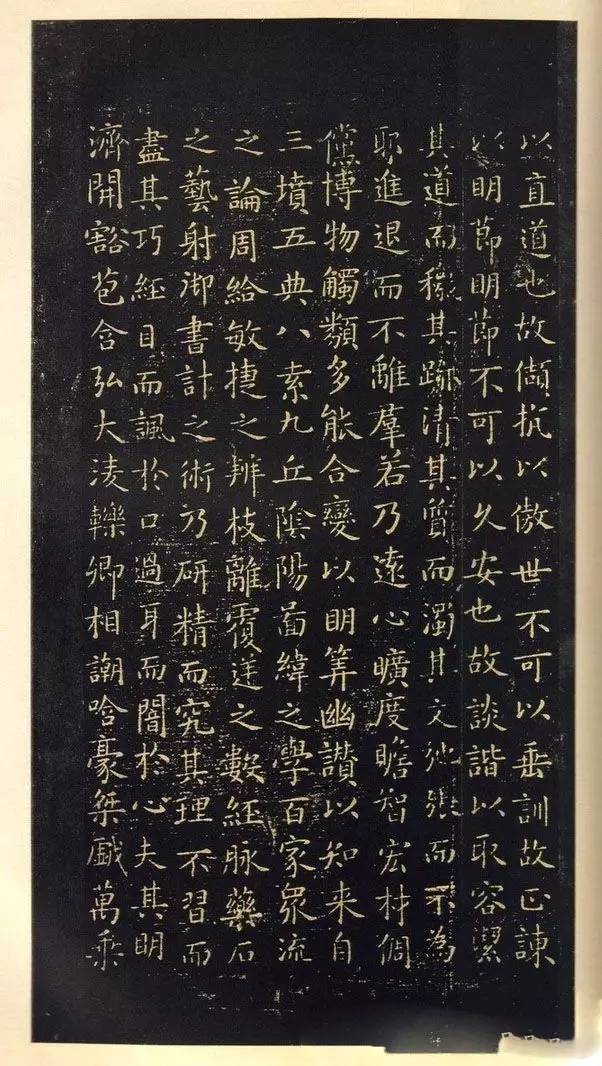 以直道也故傾抗以傲世不可以垂訓故正諫
以明節明節不可以久安也故談諧以取容潔
其道而穢其跡清其質而濁其文弛張而不為
耶進退而不離羣若乃遠心曠度瞻智宏材倜
儻博物觸類多能合變以明筭幽讚以知来自
三墳五典八索九丘陰陽啚緯之學百家眾流
之論周給敏捷之辨枝離覆逆之數經脉藥石
之藝射御書計之術乃研精而究其理不習而
盡其巧經目而諷於口過耳而闇於心夫其明
濟開豁苞含弘大淩轢卿相謿哈豪桀戲萬乘